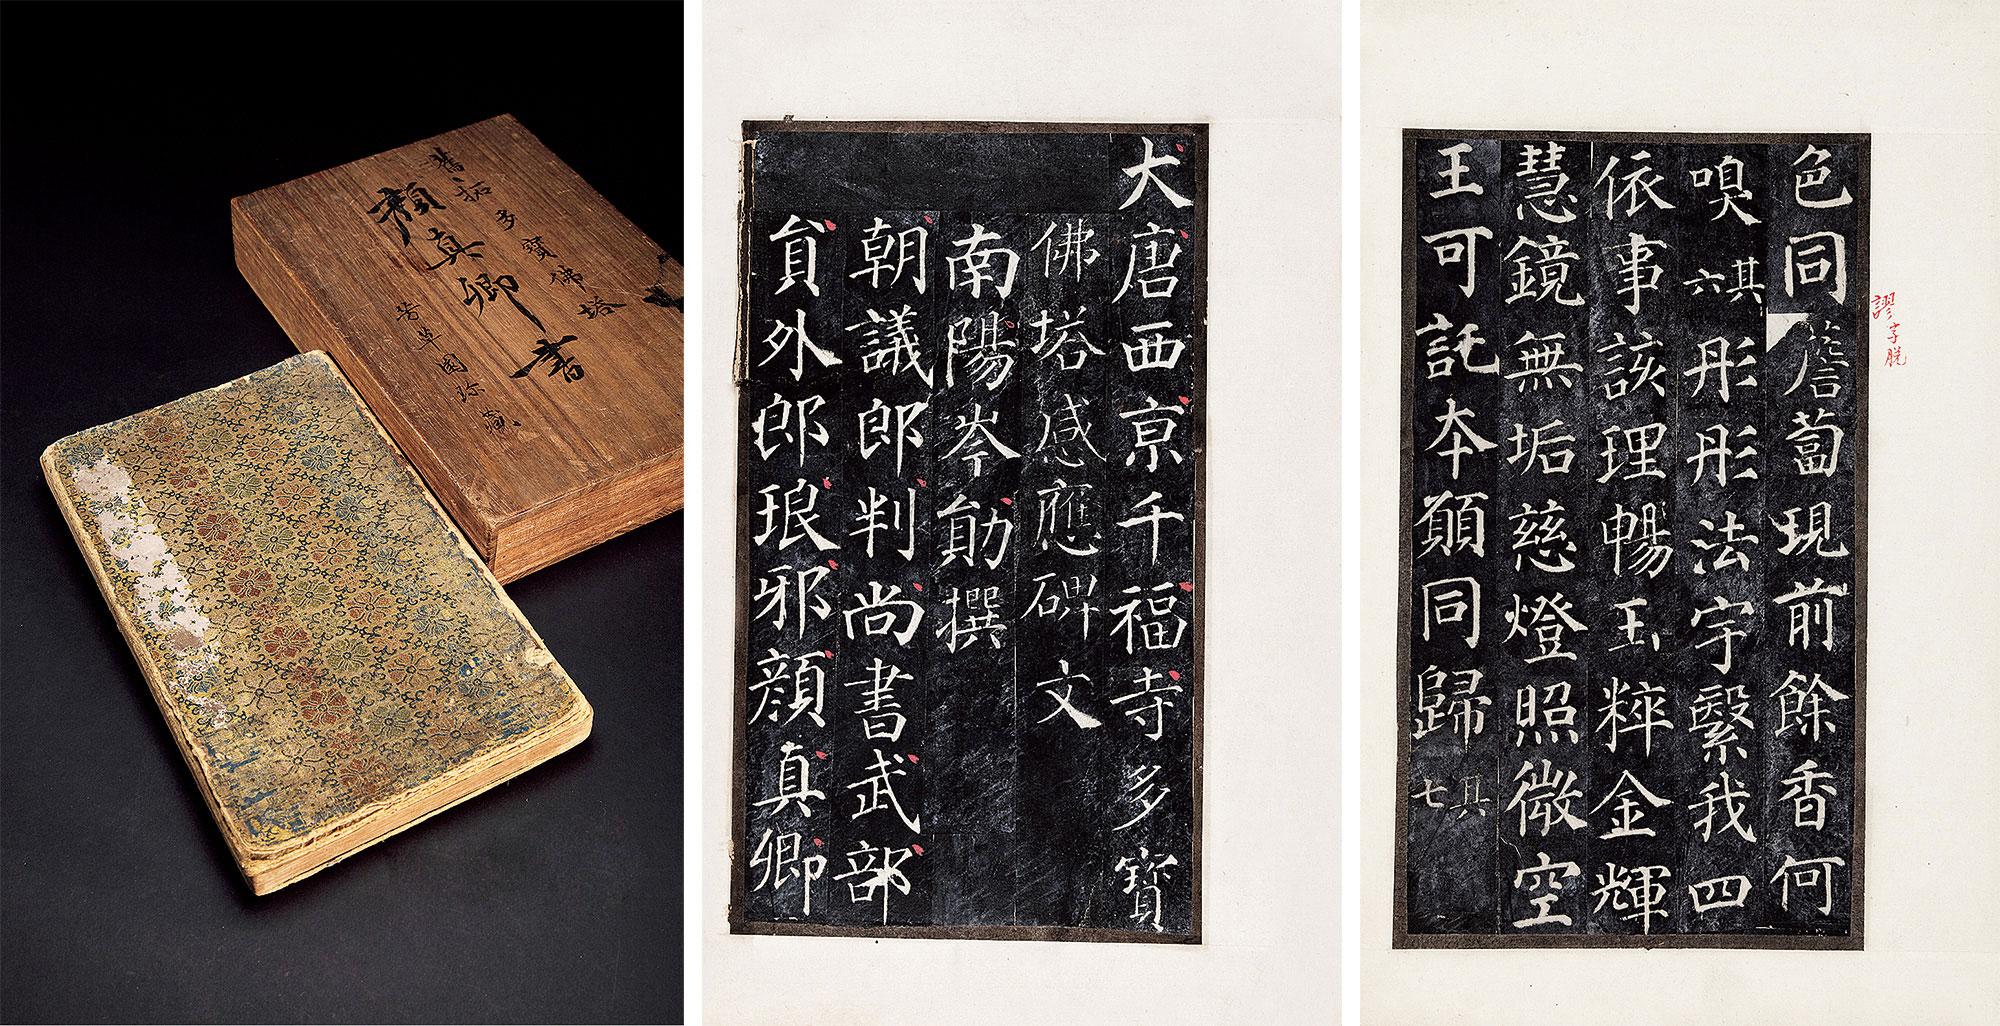 舊拓多寶佛塔
顏真卿書
芳草園珍藏
大唐西亰千福寺多寶
佛塔感應碑文
南陽岑勛撰
朝議郎判尚書武部
貟外郎琅邪顏真卿
色同薝蔔現前餘香何
嗅其六彤彤法宇繫我四
依事該理暢玉粹金輝
慧鏡無垢慈燈照微空
王可託本願同歸其七
謬字脫